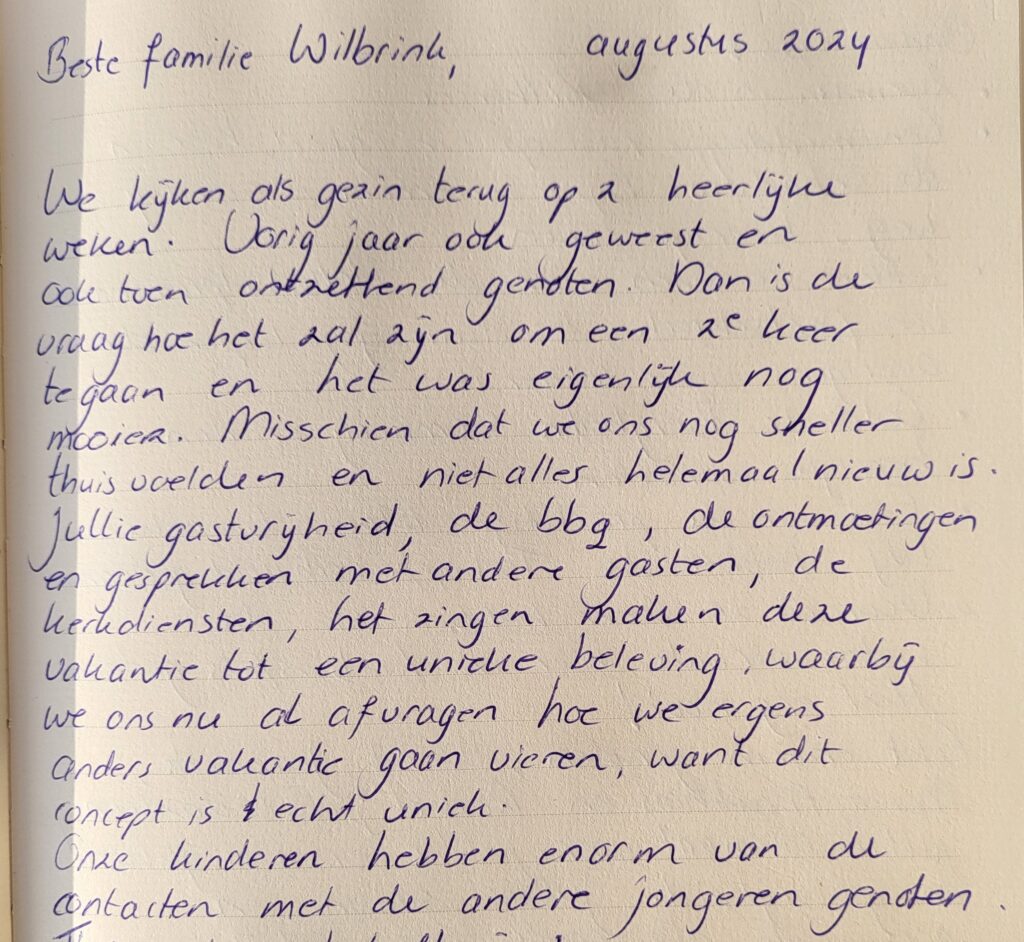 Beste familie Wilbrink, augustus 2024
We kijken als gezin terug op 2 heerlijke
weken. Vorig jaar ook geweest en
ook toen ontzettend genoten. Dan is de
vraag hoe het zal zijn om een 2e keer
te gaan en het was eigenlijk nog
mooier. Misschien dat we ons nog sneller
thuis voelden en niet alles helemaal nieuw is.
Jullie gastvrijheid, de bbq, de ontmoetingen
en gesprekken met andere gasten, de
kerkdiensten, het zingen maken deze
vakantie tot een unieke beleving, waarbij
we ons nu al afvragen hoe we ergens
anders vakantie gaan vieren, want dit
concept is echt uniek.
Onze kinderen hebben enorm van de
contacten met de andere jongeren genoten.